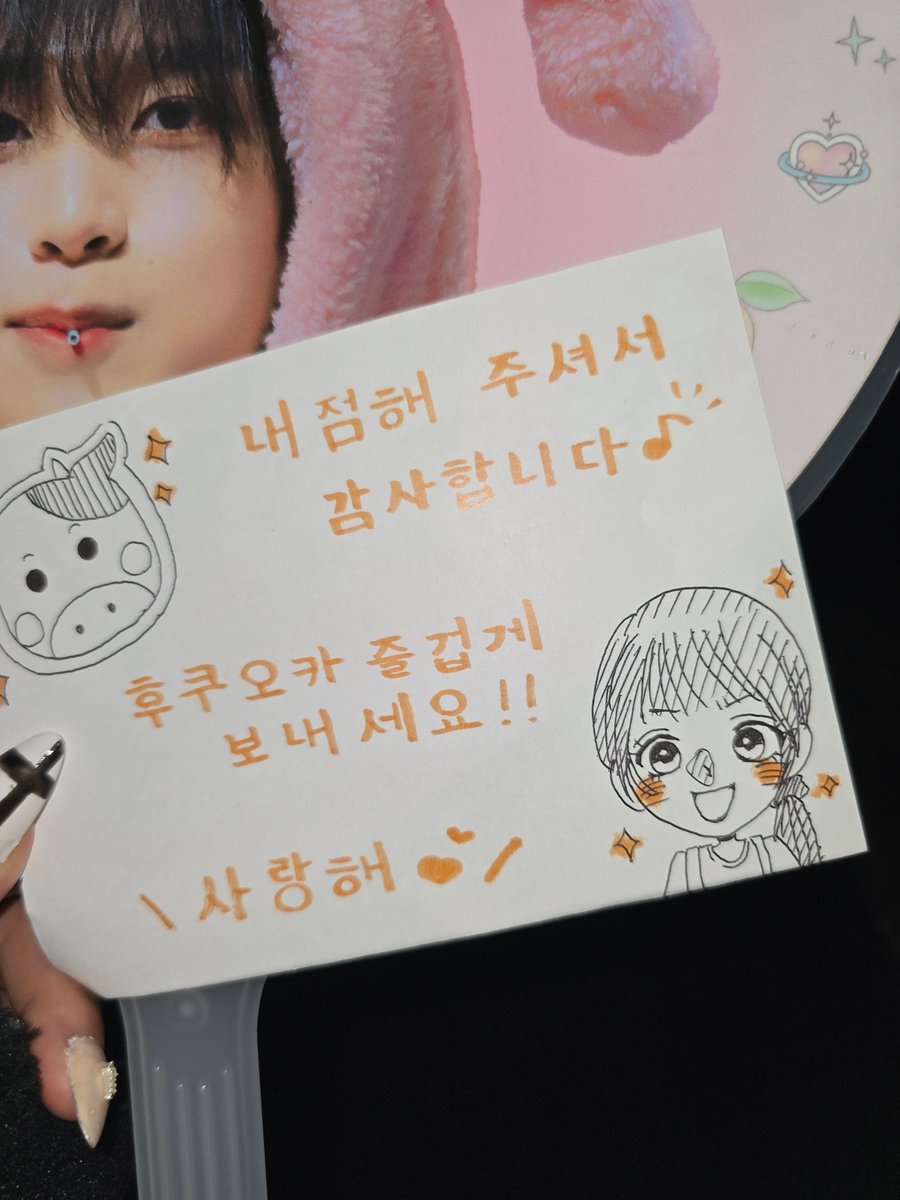 내점해 주셔서
감사합니다
후쿠오카 즐겁게
보내세요!!
\사랑해/